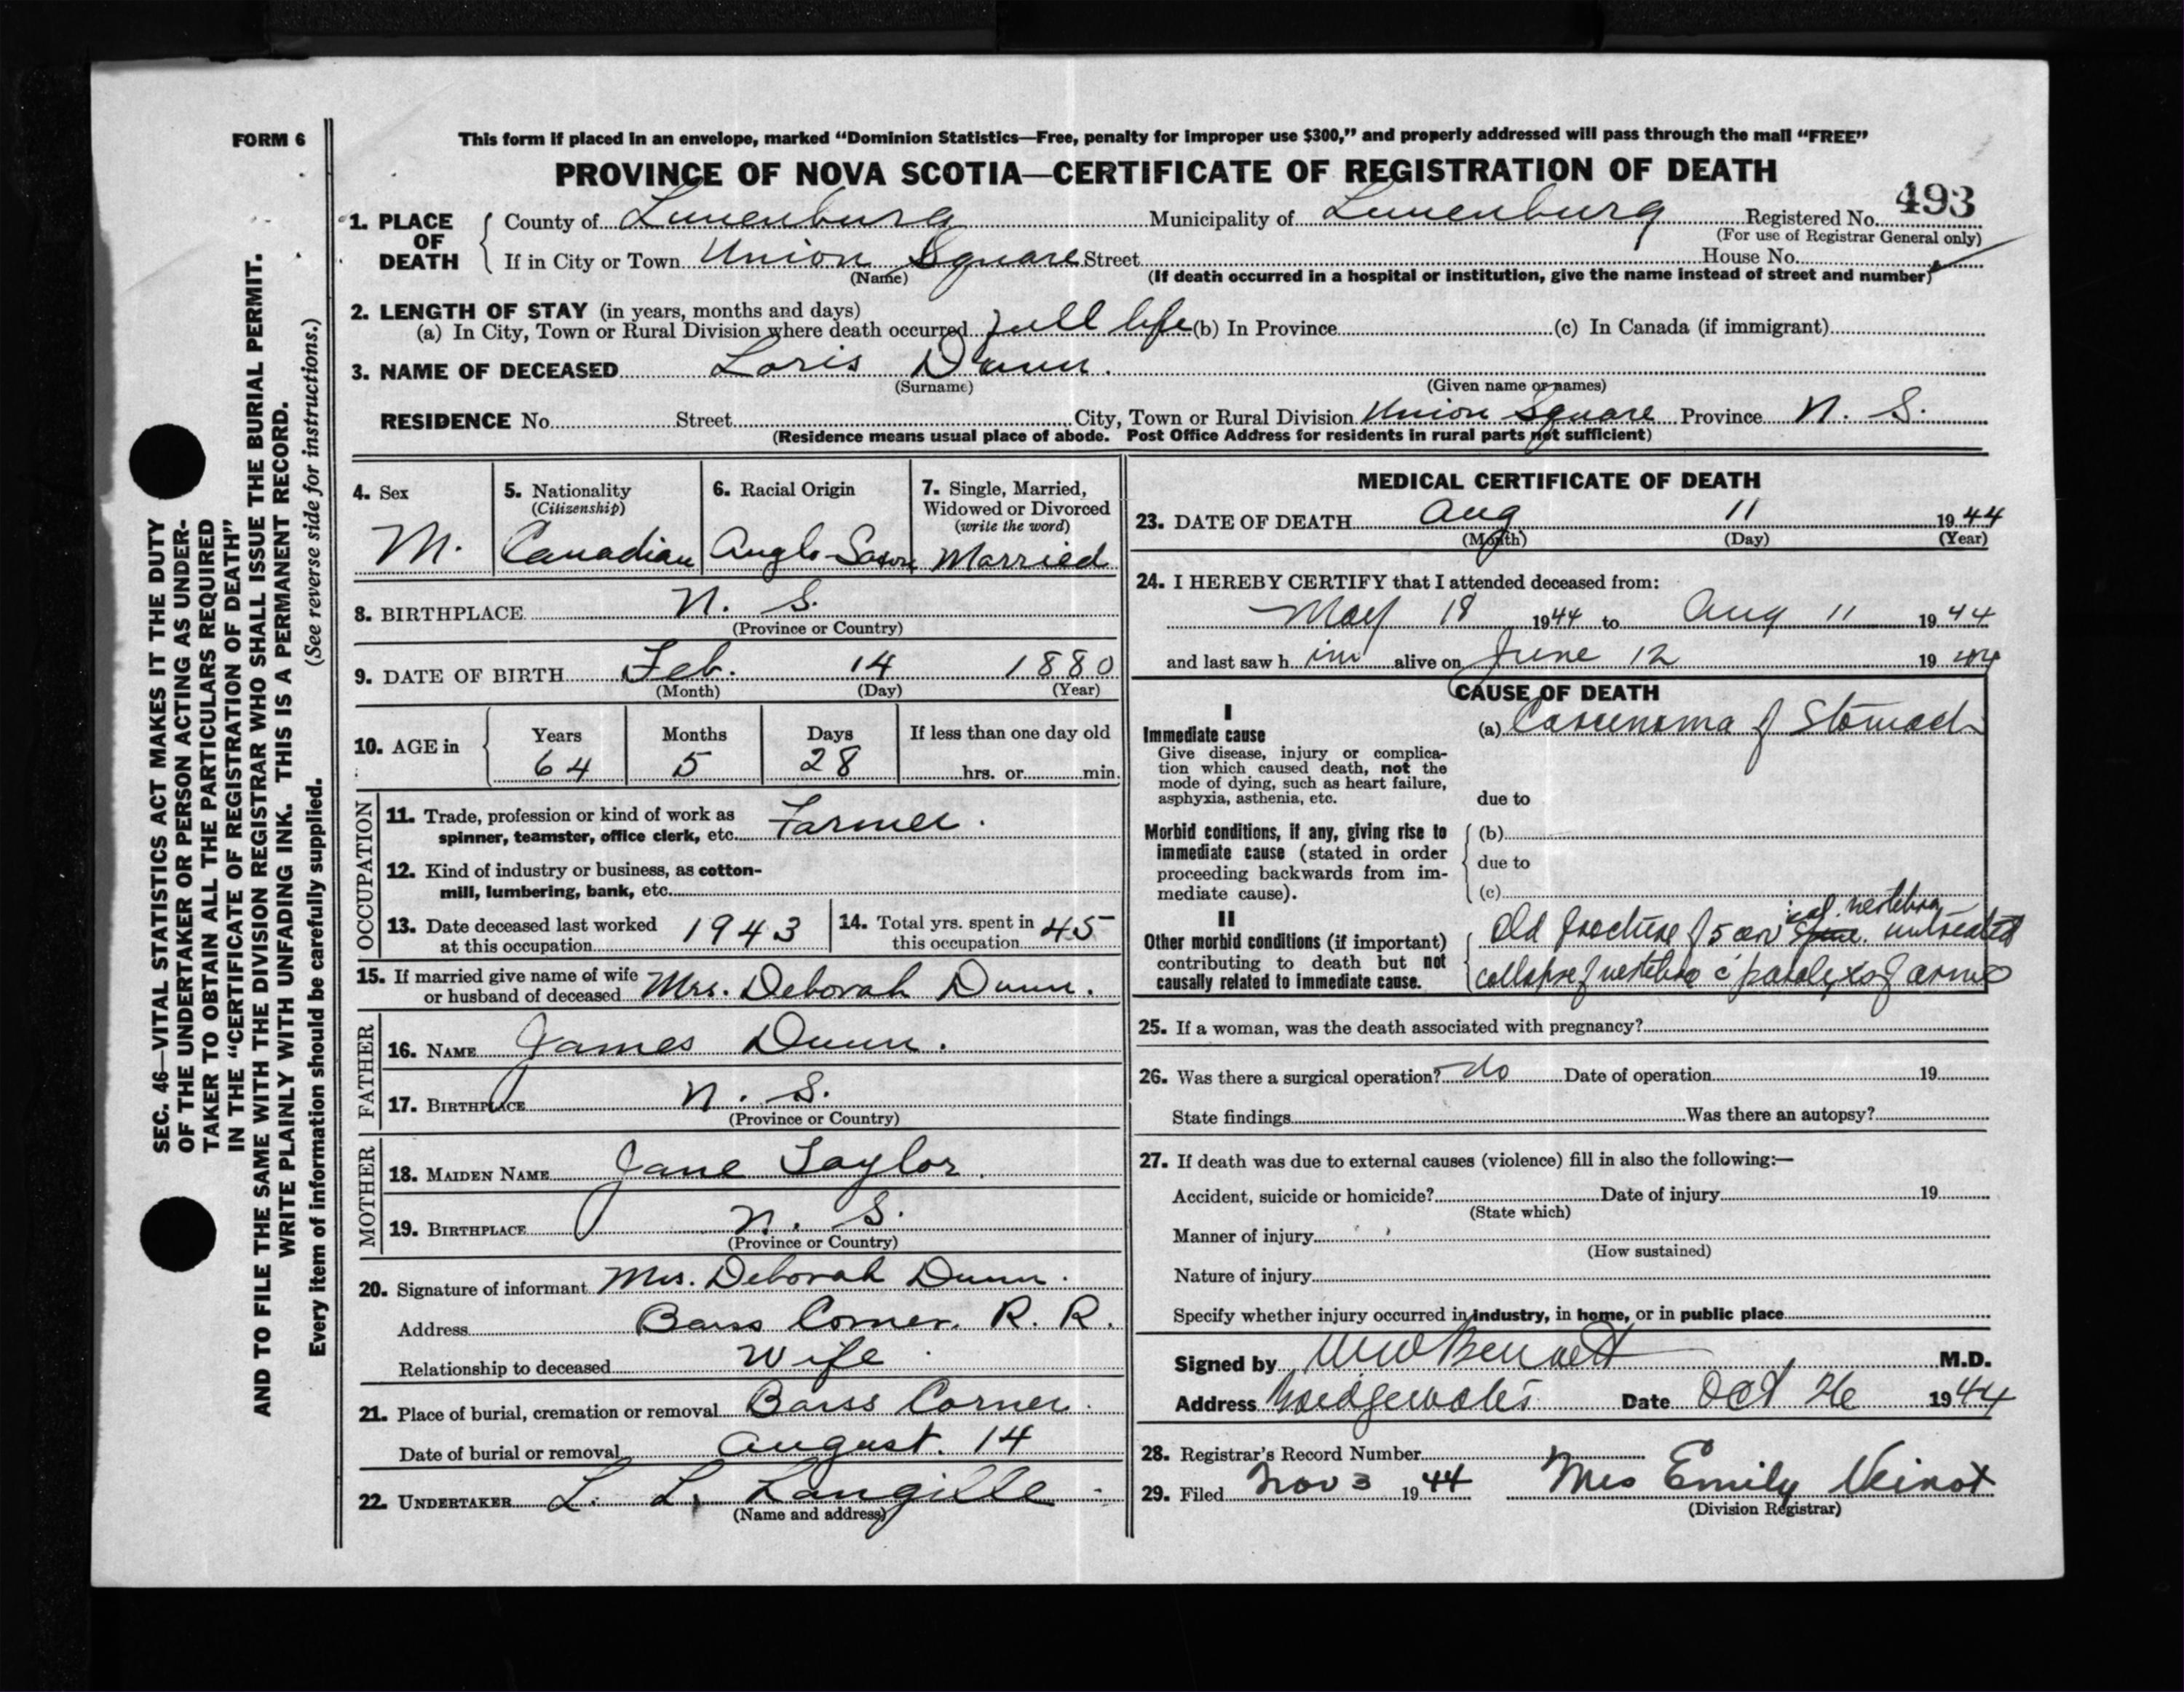 FORM 6
This form if placed in an envelope, marked "Dominion Statistics—Free, penalty for improper use $300," and properly addressed will pass through the mail "FREE"
PROVINCE OF NOVA SCOTIA—CERTIFICATE OF REGISTRATION OF DEATH
493
1. PLACE OF DEATH
County of Lunenburg Municipality of Lunenburg Registered No.
(For use of Registrar General only)
If in City or Town Union Square Street House No.
(Name) (If death occurred in a hospital or institution, give the name instead of street and number)
2. LENGTH OF STAY (in years, months and days)
(a) In City, Town or Rural Division where death occurred full life (b) In Province (c) In Canada (if immigrant)
3. NAME OF DECEASED Loris Dunn.
(Surname) (Given name or names)
RESIDENCE No. Street City, Town or Rural Division Union Square Province N. S.
(Residence means usual place of abode. Post Office Address for residents in rural parts not sufficient)
4. Sex
M.
5. Nationality
(Citizenship)
Canadian
6. Racial Origin
Anglo-Saxon
7. Single, Married,
Widowed or Divorced
(write the word)
Married
8. BIRTHPLACE N. S.
(Province or Country)
9. DATE OF BIRTH Feb. 14 1880
(Month) (Day) (Year)
10. AGE in
Years Months Days If less than one day old
64 5 28 hrs. or min.
OCCUPATION
11. Trade, profession or kind of work as
spinner, teamster, office clerk, etc. Farmer.
12. Kind of industry or business, as cotton-
mill, lumbering, bank, etc.
13. Date deceased last worked
at this occupation 1943
14. Total yrs. spent in
this occupation 45
15. If married give name of wife
or husband of deceased Mrs. Deborah Dunn.
FATHER
16. NAME James Dunn.
17. BIRTHPLACE N. S.
(Province or Country)
MOTHER
18. MAIDEN NAME Jane Taylor.
19. BIRTHPLACE N. S.
(Province or Country)
20. Signature of informant Mrs. Deborah Dunn.
Address Barss Corner. R. R.
Relationship to deceased Wife
21. Place of burial, cremation or removal Barss Corner.
Date of burial or removal August. 14
22. UNDERTAKER L. L. Langille
(Name and address)
MEDICAL CERTIFICATE OF DEATH
23. DATE OF DEATH Aug 11 1944
(Month) (Day) (Year)
24. I HEREBY CERTIFY that I attended deceased from:
May 18 1944 to Aug 11 1944
and last saw him alive on June 12 1944
CAUSE OF DEATH
I
Immediate cause
Give disease, injury or complica-
tion which caused death, not the
mode of dying, such as heart failure,
asphyxia, asthenia, etc.
(a) Carcinoma of Stomach
due to
Morbid conditions, if any, giving rise to
immediate cause (stated in order
proceeding backwards from im-
mediate cause).
(b)
due to
(c)
II
Other morbid conditions (if important)
contributing to death but not
causally related to immediate cause.
ical vertebra
Old fracture of 5 cerv spine. untreated
collapse of vertebra c paralysis of arms
25. If a woman, was the death associated with pregnancy?
26. Was there a surgical operation? No Date of operation 19
State findings Was there an autopsy?
27. If death was due to external causes (violence) fill in also the following:—
Accident, suicide or homicide? Date of injury 19
(State which)
Manner of injury
(How sustained)
Nature of injury
Specify whether injury occurred in industry, in home, or in public place
Signed by Bennett M.D.
Address Date Oct 26 1944
28. Registrar's Record Number
29. Filed Nov 3 1944 Mrs Emily Veinot
(Division Registrar)
SEC. 46—VITAL STATISTICS ACT MAKES IT THE DUTY
OF THE UNDERTAKER OR PERSON ACTING AS UNDER-
TAKER TO OBTAIN ALL THE PARTICULARS REQUIRED
IN THE "CERTIFICATE OF REGISTRATION OF DEATH"
AND TO FILE THE SAME WITH THE DIVISION REGISTRAR WHO SHALL ISSUE THE BURIAL PERMIT.
WRITE PLAINLY WITH UNFADING INK. THIS IS A PERMANENT RECORD.
Every item of information should be carefully supplied. (See reverse side for instructions.)